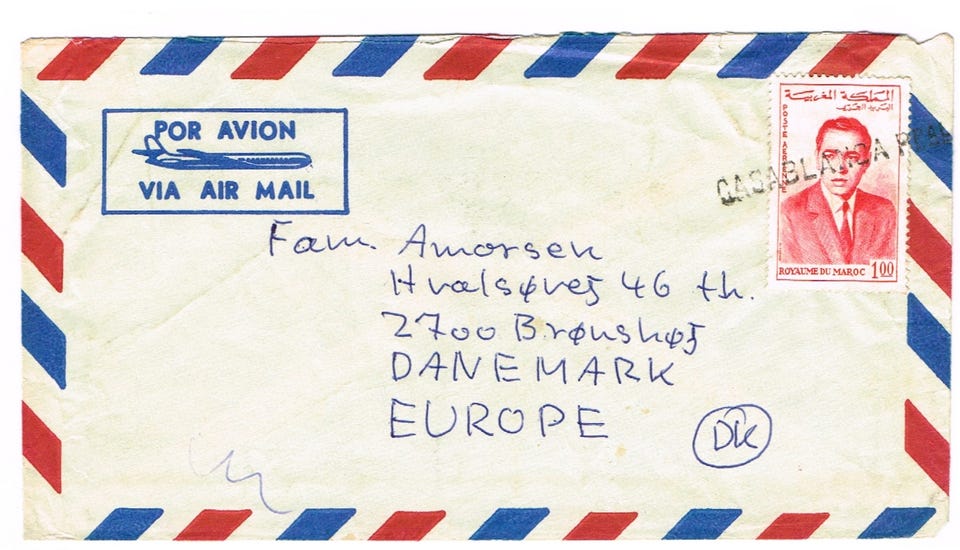 POR AVION
VIA AIR MAIL
المملكة المغربية
البريد الجوي
POSTE AERIENNE
ROYAUME DU MAROC 1.00
CASABLANCA REAL
Fam. Amorsen
Hvalsøvej 46 th.
2700 Brønshøj
DANEMARK
EUROPE
DK